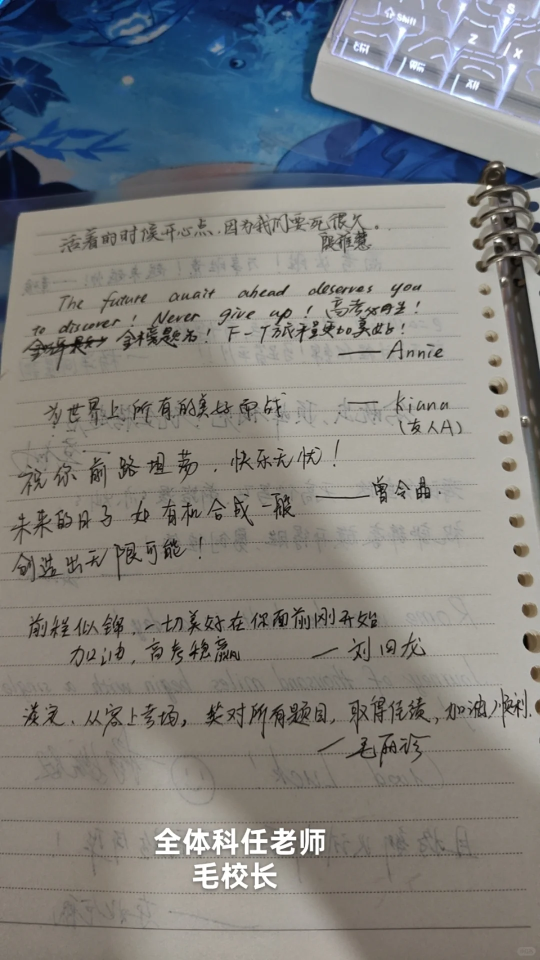 Shift
S
Z
X
Ctrl
Win
Alt
活着的时候开心点,因为我们要死很久。
殷雅慧
The future await ahead deserves you
to discover! Never give up! 高考必胜!
金榜题名! 下一个旅程更加美好!
—— Annie
为世界上所有的美好而战 —— Kiana
(友人A)
祝你前路坦荡,快乐无忧!
未来的日子如有机合成一般 ——曾令晶.
创造出无限可能!
前程似锦,一切美好在你面前刚开始
加油,高考稳赢 —刘旧龙
淡定、从容上考场,笑对所有题目,取得佳绩,加油!顺利.
—毛丽珍
全体科任老师
毛校长